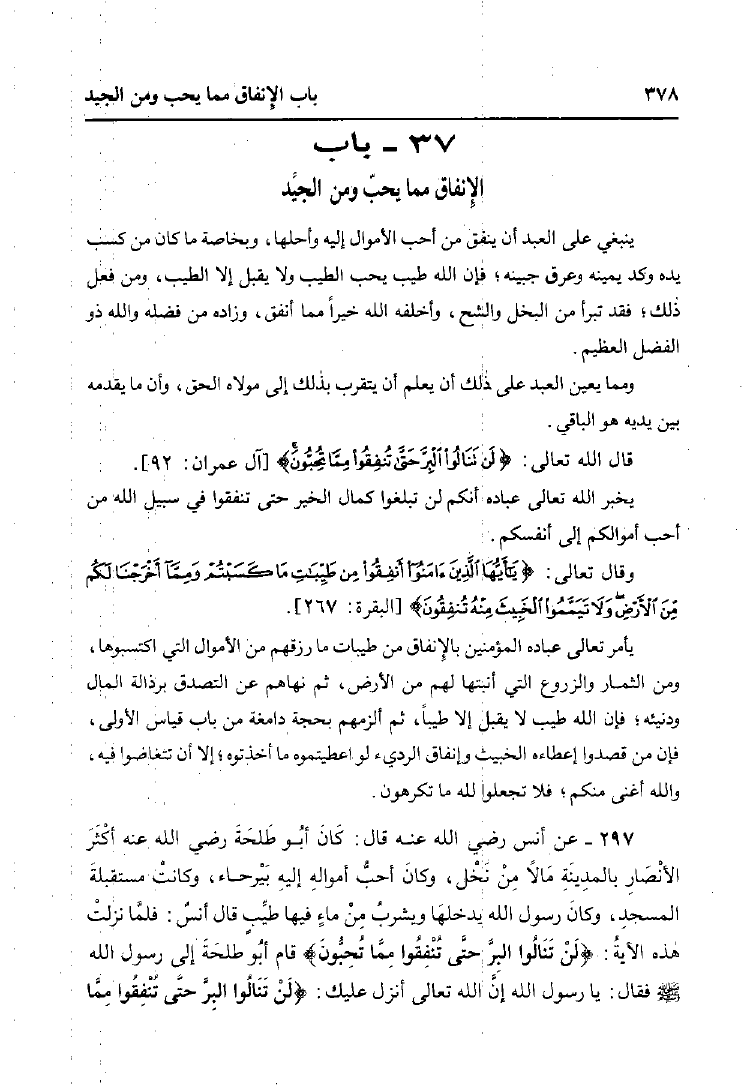 ٣٧٨ باب الإنفاق مما يحب ومن الجيد
٣٧ - باب
الإنفاق مما يحبّ ومن الجيِّد
ينبغي على العبد أن ينفق من أحب الأموال إليه وأحلها، وبخاصة ما كان من كسب
يده وكد يمينه وعرق جبينه؛ فإن الله طيب يحب الطيب ولا يقبل إلا الطيب، ومن فعل
ذلك؛ فقد تبرأ من البخل والشح، وأخلفه الله خيراً مما أنفق، وزاده من فضله والله ذو
الفضل العظيم.
ومما يعين العبد على ذلك أن يعلم أن يتقرب بذلك إلى مولاه الحق، وأن ما يقدمه
بين يديه هو الباقي.
قال الله تعالى: ﴿لَن نَنَالُوا۟ ٱلْبِرَّ حَتَّىٰ تُنفِقُوا۟ مِمَّا تُحِبُّونَ ۚ﴾ [آل عمران: ٩٢].
يخبر الله تعالى عباده أنكم لن تبلغوا كمال الخير حتى تنفقوا في سبيل الله من
أحب أموالكم إلى أنفسكم.
وقال تعالى: ﴿يَـٰٓأَيُّهَا ٱلَّذِينَ ءَامَنُوٓا۟ أَنفِقُوا۟ مِن طَيِّبَـٰتِ مَا كَسَبْتُمْ وَمِمَّآ أَخْرَجْنَا لَكُم
مِّنَ ٱلْأَرْضِ ۖ وَلَا تَيَمَّمُوا۟ ٱلْخَبِيثَ مِنْهُ تُنفِقُونَ﴾ [البقرة: ٢٦٧].
يأمر تعالى عباده المؤمنين بالإنفاق من طيبات ما رزقهم من الأموال التي اكتسبوها،
ومن الثمار والزروع التي أنبتها لهم من الأرض، ثم نهاهم عن التصدق برذالة المال
ودنيئه؛ فإن الله طيب لا يقبل إلا طيباً، ثم ألزمهم بحجة دامغة من باب قياس الأولى،
فإن من قصدوا إعطاءه الخبيث وإنفاق الرديء لو اعطيتموه ما أخذتوه؛ إلا أن تتغاضوا فيه،
والله أغنى منكم؛ فلا تجعلوا لله ما تكرهون.
٢٩٧ - عن أنس رضي الله عنه قال: كَانَ أبُو طَلحَةَ رضي الله عنه أكْثَرَ
الأنْصَارِ بالمدِينَةِ مَالاً مِنْ نَخْل، وكَانَ أحبُّ أموالهِ إليه بَيْرحاء، وكانتْ مستقبلةَ
المسجدِ، وكانَ رسول الله يدخلهَا ويشربُ مِنْ ماءٍ فيها طيِّبٍ قال أنسٌ: فلمَّا نزلتْ
هٰذه الآيةُ: ﴿لَنْ تَنَالُوا البِرَّ حتَّى تُنْفِقُوا مِمَّا تُحِبُّونَ﴾ قام أبُو طلحَةَ إلى رسول الله
ﷺ فقال: يا رسول الله إنَّ الله تعالى أنزل عليك: ﴿لَنْ تَنَالُوا البِرَّ حتَّى تُنْفِقُوا مِمَّا